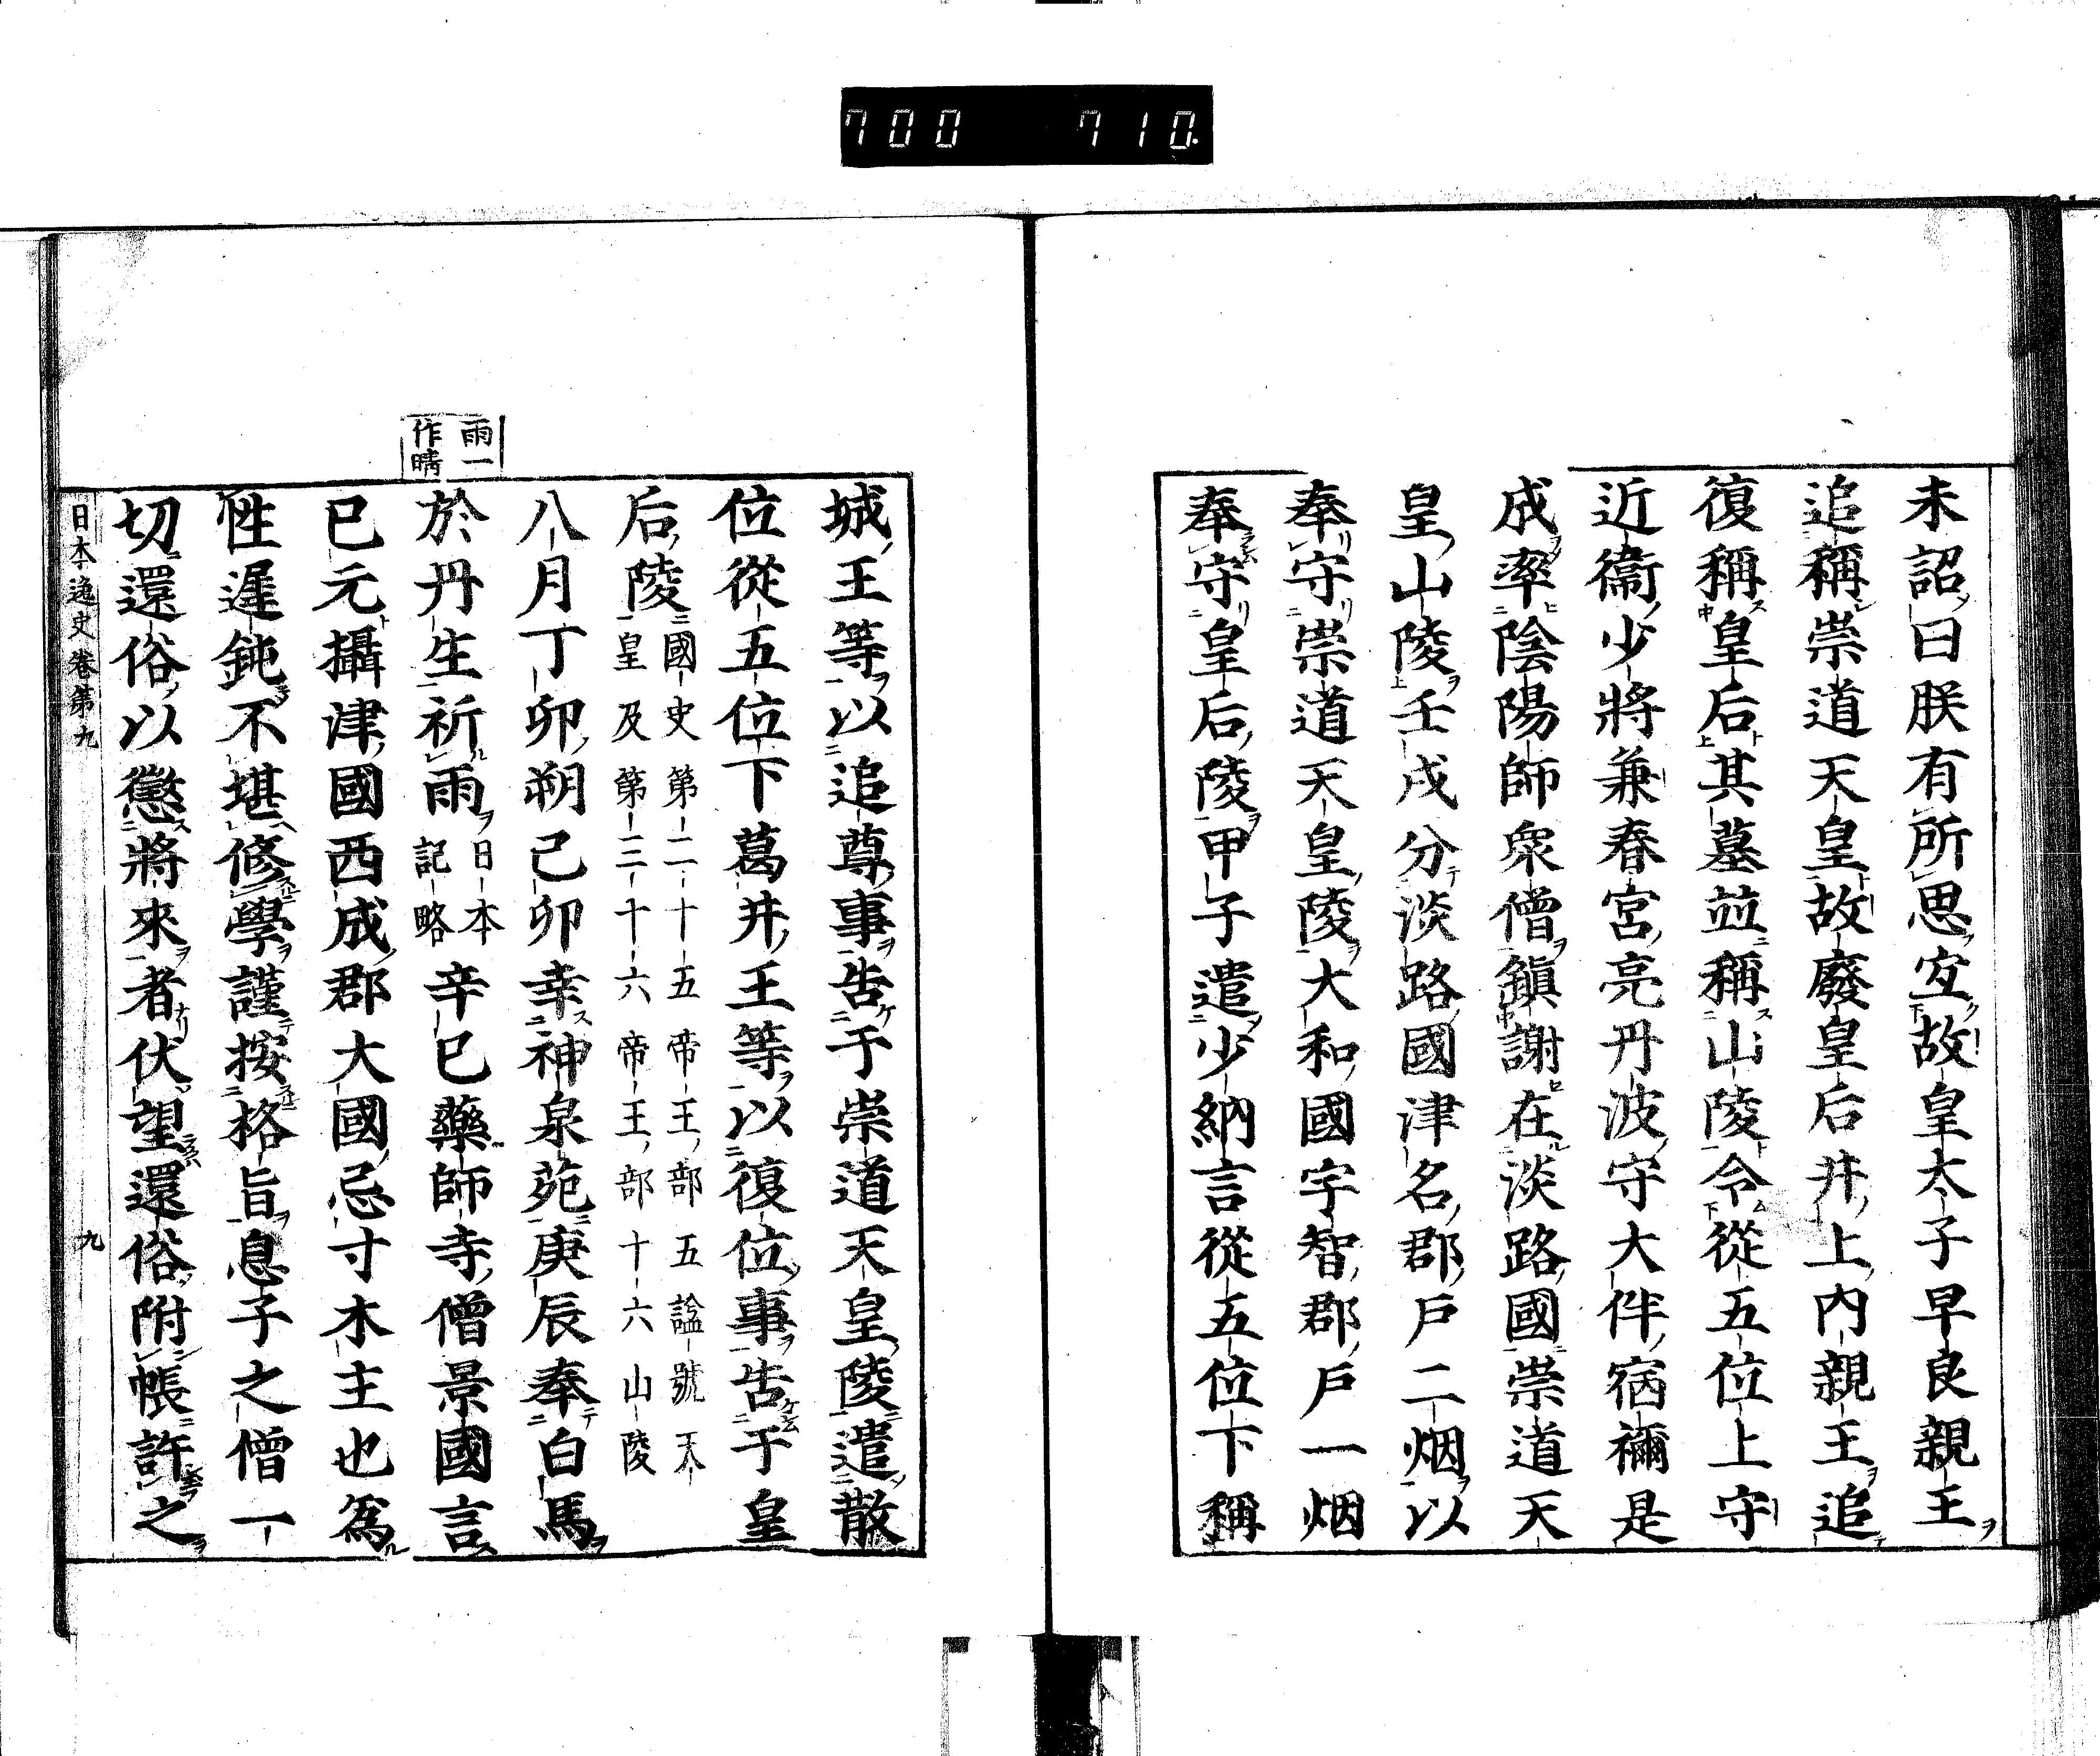 700 710.
未詔曰朕有所思宜故皇太子早良親王
追稱崇道天皇故廢皇后井上內親王追
復稱皇后其墓並稱山陵令從五位上守
近衞少將兼春宮亮丹波守大伴宿禰是
成率陰陽師衆僧鎭謝在淡路國崇道天
皇山陵壬戌分淡路國津名郡戶二烟以
奉守崇道天皇陵大和國宇智郡戶一烟
奉守皇后陵甲子遣少納言從五位下稱
城王等以追尊事告于崇道天皇陵遣散
位從五位下葛井王等以復位事告于皇
后陵 國史第二十五帝王部五謚號天
皇及第三十六帝王部十六山陵
八月丁卯朔己卯幸神泉苑庚辰奉白馬
雨一
作晴
於丹生祈雨 日本
記略 辛巳藥師寺僧景國言
已元攝津國西成郡大國忌寸木主也爲
性遲鈍不堪修學謹按格旨息子之僧一
切還俗以懲將來者伏望還俗附帳許之
日本逸史卷第九 九